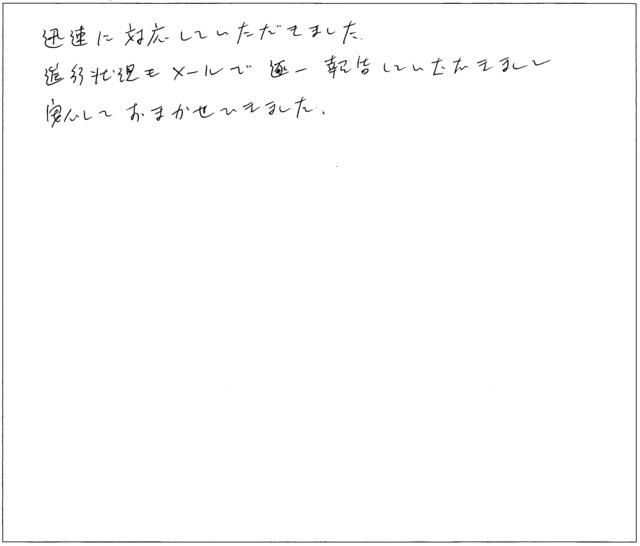 迅速に対応していただきました.
進行状況もメールで逐一報告していただきまして
安心しておまかせできました.